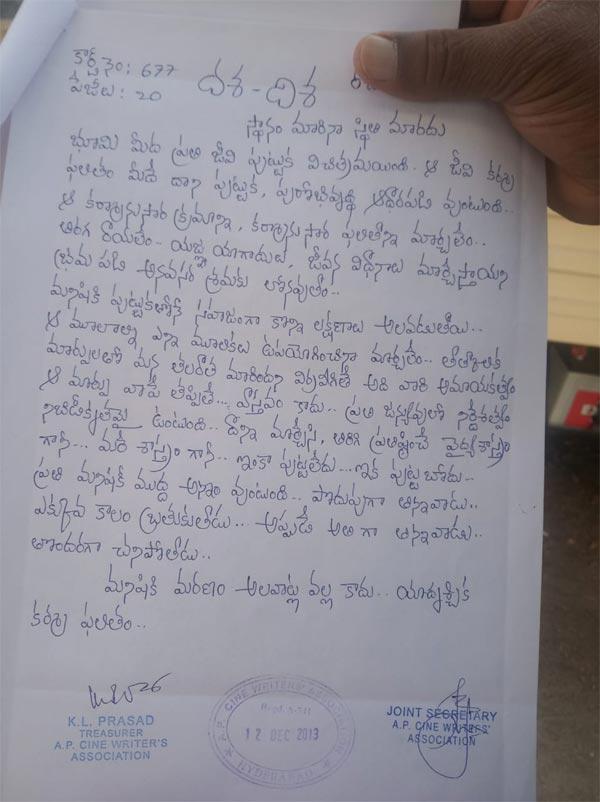 కార్డ్ నెం: 677
పేజీలు: 20
దశ - దిశ
స్థానం మారినా స్థితి మారదు
భూమి మీద ప్రతి జీవి పుట్టుక విచిత్రమయింది. ఆ జీవి కర్మ
ఫలితం మీదే దాని పుట్టుక, పురోభివృద్ధి ఆధారపడి వుంటుంది..
ఆ కర్మానుసార క్రమాన్ని, కర్మానుసార ఫలితాన్ని మార్చలేం..
తిరగ రాయలేం.. యజ్ఞ యాగాదులు, జీవన విధానాలు మార్చేస్తాయని
భ్రమ పడి అనవసర శ్రమకు లోనవుతాం..
మనిషికి పుట్టుకతోనే సహజంగా కొన్ని లక్షణాలు అలవడుతాయి..
ఆ మూలాల్ని ఎన్ని మూలికలు ఉపయోగించినా మార్చలేం.. తాత్కాలిక
మార్పులతో మన తలరాత మారిందని విర్రవీగితే అది వారి అమాయకత్వం
ఆ మార్పు వాపే తప్పితే... వాస్తవం కాదు.. ప్రతి జన్యువులో నిర్దేశత్వం
నిబిడీకృతమై ఉంటుంది.. దాన్ని మార్చేసి, తిరిగి ప్రతిష్టించే వైద్యశాస్త్రం
గానీ... మరే శాస్త్రం గానీ.. ఇంకా పుట్టలేదు... ఇక పుట్ట బోదు..
ప్రతి మనిషికీ ముద్ద అన్నం వుంటుంది.. పొదుపుగా తిన్నవాడు..
ఎక్కువ కాలం బ్రతుకుతాడు... అప్పుడే అతి గా తిన్నవాడు..
తొందరగా చనిపోతాడు..
మనిషికి మరణం అలవాట్ల వల్ల కాదు.. యాదృచ్ఛిక
కర్మ ఫలితం..
K.L. PRASAD
TREASURER
A.P. CINE WRITER'S
ASSOCIATION
A.P. CINE WRITERS ASSOCIATION
Regd.
12 DEC 2013
HYDERABAD
JOINT SECRETARY
A.P. CINE WRITERS'
ASSOCIATION